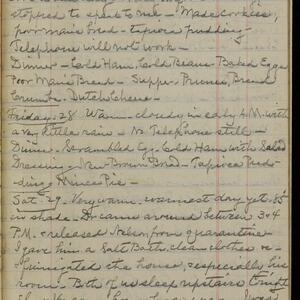 stopped to speak to me - Made Cookies,
poor man's Bread - tapioca pudding
Telephone will not work -
Dinner - Cold Ham, Cold Beans - Baked Eggs
Poor Man's Bread - Supper - Prunes, Bread
Crumbs. Dutch Cheese -
Friday. 28 Warm - cloudy in early A.M. with
a very little rain - No Telephone still -
Dinner - Scrambled Egg. Cold Ham with Salad
Dressing. New Brown Bread - Tapioca Pud-
ding & Mince Pie -
Sat. 29. Very warm. warmest day yet. 85°
in shade. Dr. came around between 3 & 4
P.M. & released from quarantine -
I gave him a Salt Bath, clean clothes &
fumigated the house, especially his
room - Both of us sleep upstairs to night